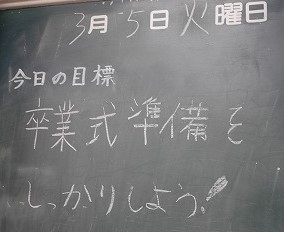 3月5日火曜日
今日の目標
卒業式準備を
しっかりしよう!